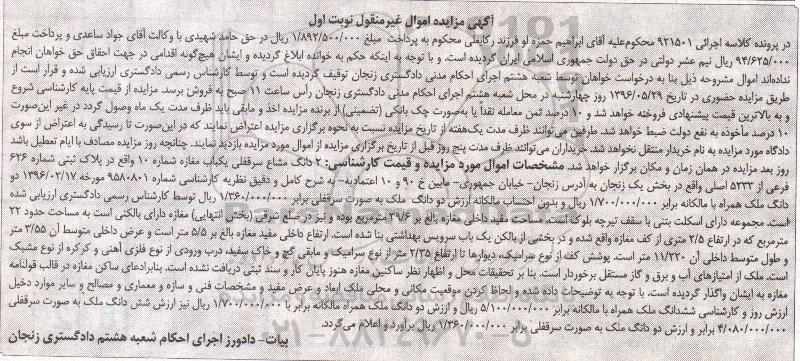 آگهی مزایده اموال غیرمنقول نوبت اول
در پرونده کلاسه اجرائی ۹۲۱۵۰۱ محکوم‌علیه آقای ابراهیم حمزه لو فرزند رکابعلی محکوم به پرداخت مبلغ ۱/۸۹۲/۵۰۰/۰۰۰ ریال در حق حامد شهیدی با وکالت آقای جواد ساعدی و پرداخت مبلغ
۹۴/۶۲۵/۰۰۰ ریال نیم عشر دولتی در حق دولت جمهوری اسلامی ایران گردیده است. و با توجه به اینکه حکم به خوانده ابلاغ گردیده و ایشان هیچ‌گونه اقدامی در جهت احقاق حق خواهان انجام
نداده‌اند اموال مشروحه ذیل بنا به درخواست خواهان توسط شعبه هشتم اجرای احکام مدنی دادگستری زنجان توقیف گردیده است و توسط کارشناس رسمی دادگستری ارزیابی شده و قرار است از
طریق مزایده حضوری در تاریخ ۱۳۹۶/۰۵/۲۹ روز چهارشنبه در محل شعبه هشتم اجرای احکام مدنی دادگستری زنجان رأس ساعت ۱۱ صبح به فروش برسد. مزایده از قیمت پایه کارشناسی شروع
و به بالاترین قیمت پیشنهادی فروخته خواهد شد و ۱۰ درصد ثمن معامله نقداً یا به‌صورت چک بانکی (تضمینی) از برنده مزایده اخذ و مابقی باید ظرف مدت یک ماه وصول گردد در غیر این‌صورت
۱۰ درصد ماخوذه به نفع دولت ضبط خواهد شد. طرفین می‌توانند ظرف مدت یک‌هفته از تاریخ مزایده نسبت به نحوه برگزاری مزایده اعتراض نمایند که در این‌صورت تا رسیدگی به اعتراض از سوی
دادگاه مورد مزایده به نام خریدار منتقل نخواهد شد. خریداران می‌توانند ظرف مدت پنج روز قبل از تاریخ برگزاری مزایده از اموال مورد مزایده بازدید نمایند. چنانچه روز مزایده مصادف با ایام تعطیل باشد
روز بعد مزایده در همان زمان و مکان برگزار خواهد شد. مشخصات اموال مورد مزایده و قیمت کارشناسی: ۲ دانگ مشاع سرقفلی یکباب مغازه شماره ۱۰ واقع در پلاک ثبتی شماره ۶۲۶
فرعی از ۵۲۳۳ اصلی واقع در بخش یک زنجان به آدرس زنجان- خیابان جمهوری- مابین خ ۹۰ و ۱۰ اعتمادیه- به شرح کامل و دقیق نظریه کارشناسی شماره ۹۵۸۰۸۰۱ مورخه ۱۳۹۶/۰۲/۱۷ دو
دانگ ملک همراه با مالکانه برابر ۱/۷۰۰/۰۰۰/۰۰۰ ریال و بدون احتساب مالکانه ارزش دو دانگ ملک به صورت سرقفلی برابر ۱/۳۶۰/۰۰۰/۰۰۰ ریال توسط کارشناس رسمی دادگستری ارزیابی شده
است. مجموعه دارای اسکلت بتنی با سقف تیرچه بلوک است. مساحت مفید داخلی مغازه بالغ بر ۳۹/۶ مترمربع بوده و نیز در ضلع شرقی (بخش انتهایی) مغازه دارای بالکنی است به مساحت حدود ۲۲
مترمربع که در ارتفاع ۲/۵ متری از کف مغازه واقع شده و در بخشی از بالکن یک باب سرویس بهداشتی بنا شده است. ارتفاع داخلی مفید مغازه بالغ بر ۵/۵ متر است و عرض داخلی متوسط آن ۳/۵۵ متر
و طول متوسط داخلی آن ۱۱/۲۲۰ متر است. پوشش کف از نوع سرامیک، دیوارها تا ارتفاع ۲/۳۵ متر از نوع سرامیک و مابقی گچ و خاک سفید، درب ورودی از نوع فلزی آهنی و کرکره از نوع مشبک
است. ملک از امتیازهای آب و برق و گاز مستقل برخوردار است. بنا بر تحقیقات محل و اظهار نظر ساکنین مغازه هنوز پایان کار و سند ثبتی دریافت نشده است. بنابرادعای ساکن مغازه در قالب قولنامه
مغازه به ایشان واگذار گردیده است. با توجه به توضیحات داده شده و لحاظ کردن موقعیت مکانی و محلی ملک ابعاد و عرض مفید و مشخصات فنی و سازه و معماری و مصالح و سایر موارد دخیل
ارزش روز و کارشناسی ششدانگ ملک همراه با مالکانه برابر ۵/۱۰۰/۰۰۰/۰۰۰ ریال و ارزش دو دانگ ملک همراه مالکانه برابر با ۱/۷۰۰/۰۰۰/۰۰۰ ریال نیز ارزش شش دانگ ملک به صورت سرقفلی
۴/۰۸۰/۰۰۰/۰۰۰ برابر و ارزش دو دانگ ملک به صورت سرقفلی برابر ۱/۳۶۰/۰۰۰/۰۰۰ ریال برآورد و اعلام می‌گردد.
بیات- دادورز اجرای احکام شعبه هشتم دادگستری زنجان
۰۲۱-۸۸۳۴۹۶۷۰-۵